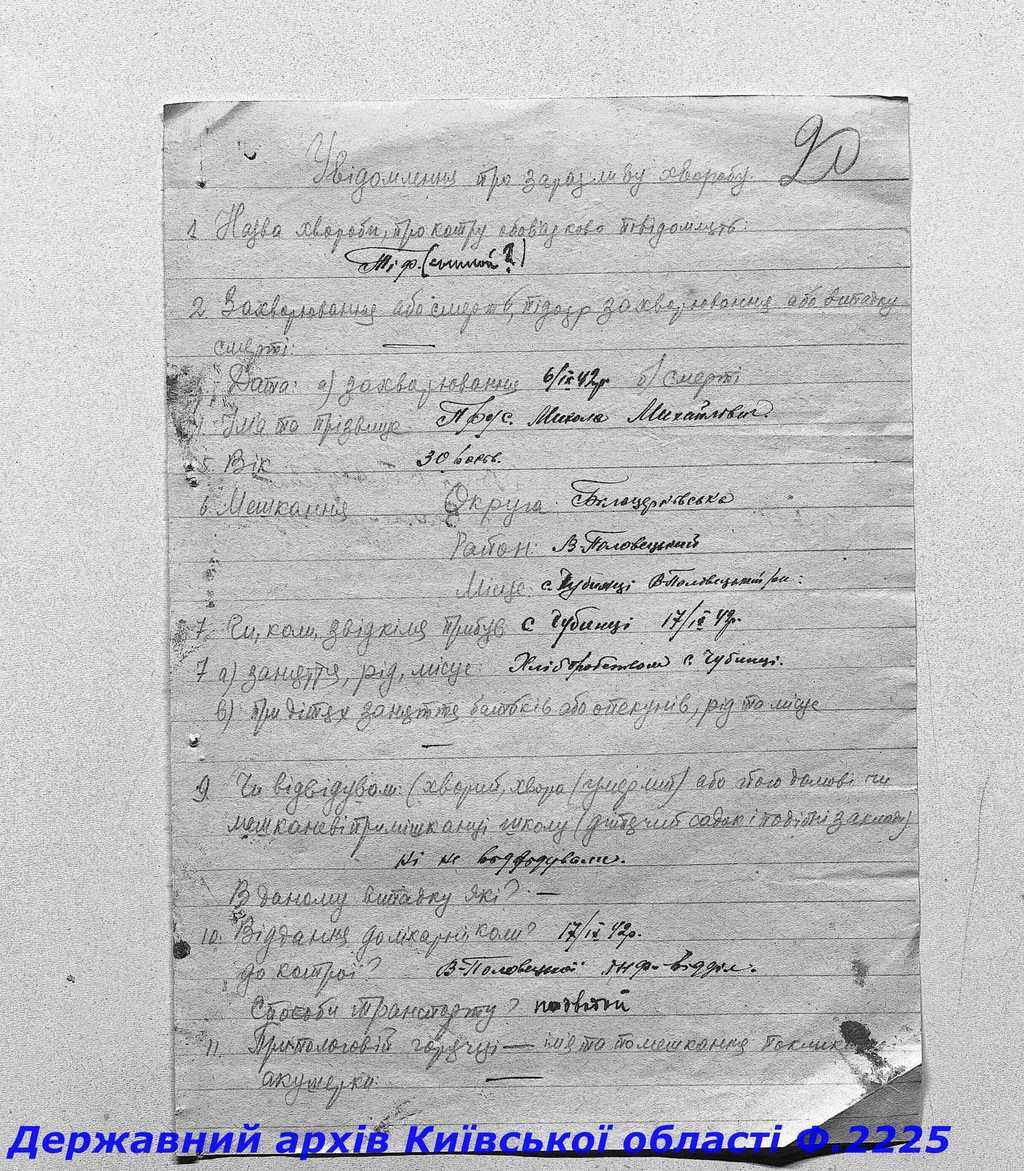 20
Увідомлення про заразливу хворобу.
1 Назва хвороби, про котру обов'язково повідомить:
Тіф. (сипной?)
2. Захворювання або смерть, підозр захворювання або випадку
смерті: —
Дата: а) захворювання 6/ІХ 42р б) смерті
4. Ім'я та прізвище Микола Михайлович.
5. Вік 30
6. Мешкання Округа Білоцерківська
Район: В-Половецький
Місце: с. Чубинці В-Половецький р-н:
7. Чи, коли, звідкіля прибув с Чубинці 17/ІХ 42р.
7 а) заняття, рід, місце Хліборобством с. Чубинці.
в) при дітях заняття батьків або опекунів, рід та місце
—
9 Чи відвідували: (хворий, хвора (умерлий) або його домові чи
мешканеві примішканці школу (дитячий садок і подібні заклади)
ні не
В даному випадку які? —
10. Віддання до лікарні коли? 17/ІХ 42р.
до котрої? В-Половецької інф. відділ.
Способи транспорту? подводой
11. При пологовій горячці — імя та помешкання
акушерки: —
Державний архів Київської області Ф.2225